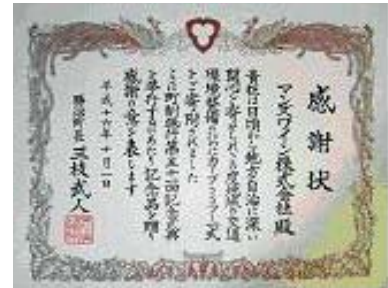 感謝状
マンズワイン株式会社殿
貴社は日頃から地方自治に深い
関心を寄せられ今度地域の交通
環境整備のためカーブミラー一式
をご寄附されました
ここに町制施行第五十回記念式典
を挙行するにあたり記念品を贈り
感謝の意を表します
平成十六年十月一日
勝沼町長 三枝武人